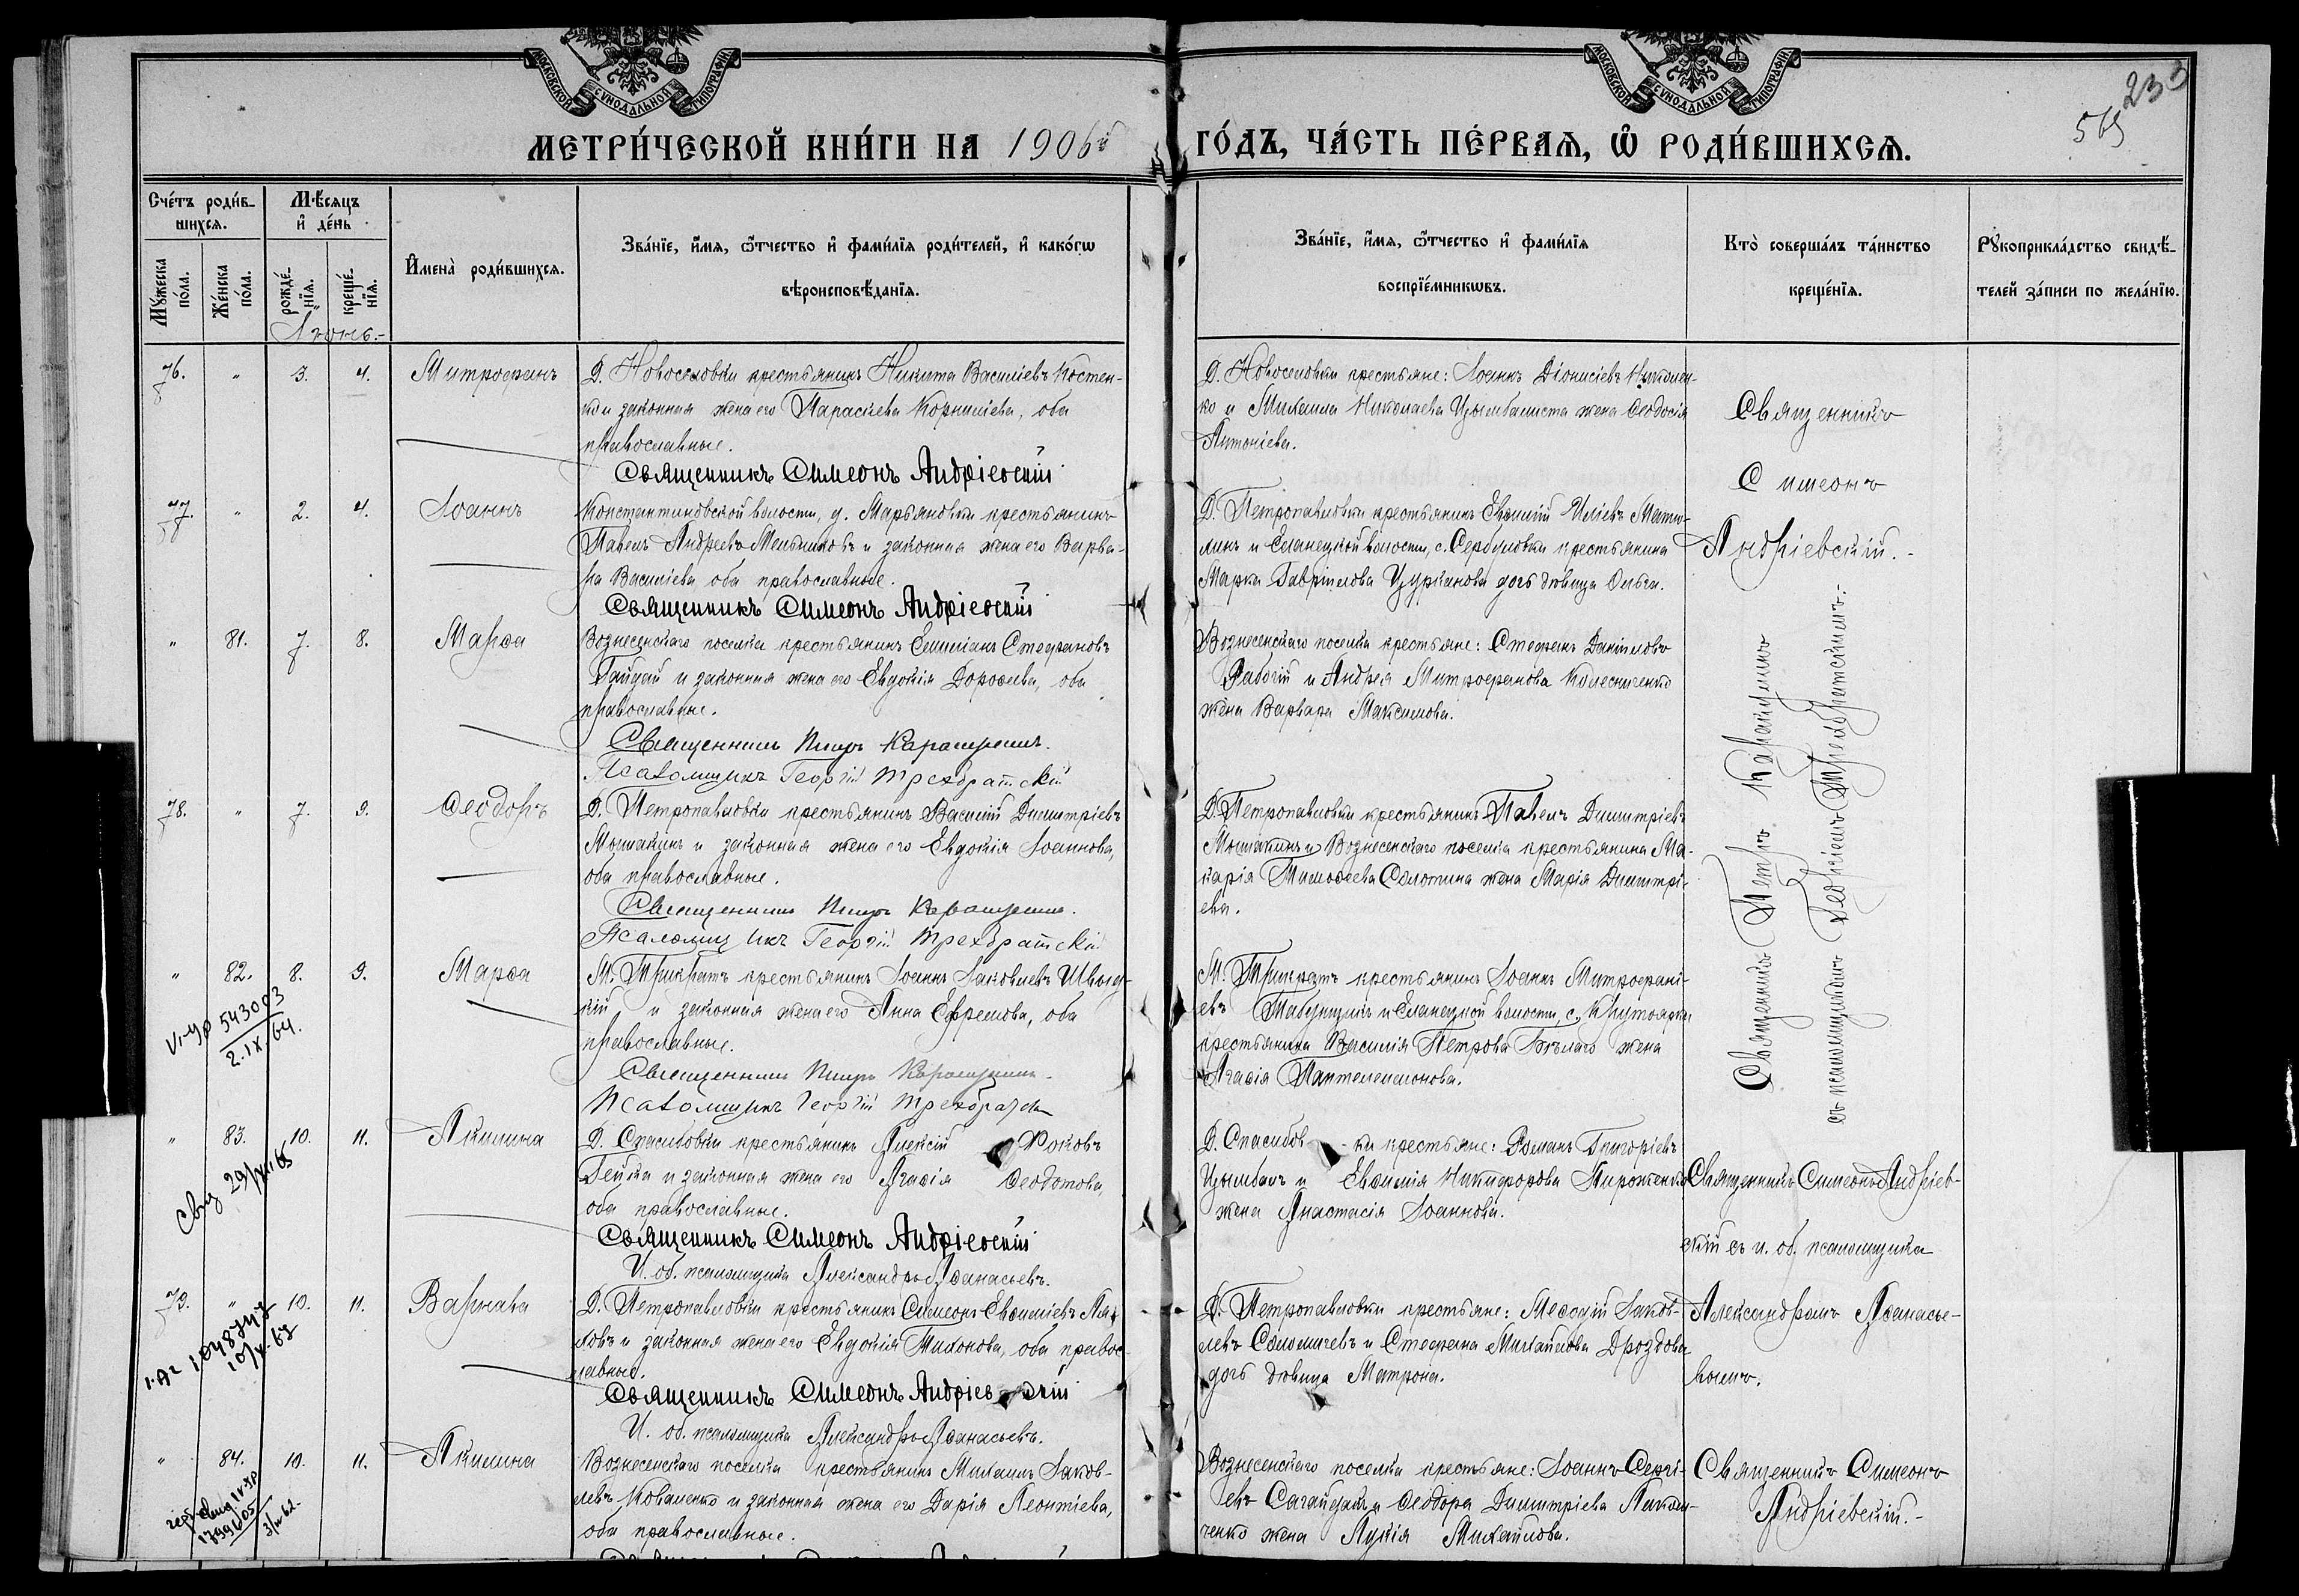 МОСКОВСКОЙ СѴНОДАЛЬНОЙ ТИПОГРАФІИ
МОСКОВСКОЙ СѴНОДАЛЬНОЙ ТИПОГРАФІИ
233
569
МЕТРИ́ЧЕСКОЙ КНИ́ГИ НА 1906й ГО́ДЪ, ЧА́СТЬ ПЕ́РВАѦ, Ѡ҆ РОДИ́ВШИХСѦ.
Сче́тъ роди́в-
шихсѧ.
Мꙋжеска по́ла.
Же́нска по́ла.
Мѣ́сѧцъ
и҆ де́нь
рожде́-нїѧ.
креще́-нїѧ.
И҆мена̀ роди́вшихсѧ.
Зва́нїе, и҆́мѧ, ѻ҆́тчество и҆ фами́лїѧ роди́телей, и҆ како́гѡ
вѣроисповѣ́данїѧ.
Зва́нїе, и҆́мѧ, ѻ҆́тчество и҆ фами́лїѧ
воспрїе́мникѡвъ.
Кто̀ соверша́лъ та́инство
креще́нїѧ.
Рꙋкоприкла́дство свидѣ́-
телей за́писи по жела́нїю.
Іюнь.-
76. " 3. 4. Митрофанъ
Д. Новоселовки крестьянинъ Никита Василіевъ Костен-
ко и законная жена его Параскева Корниліева, оба
православные.
Священникъ Симеонъ Андріевскій
Д. Новоселовки крестьяне: Іоаннъ Діонисіевъ
ко и Михаила Николаева Цымбалиста жена Ѳеодосія
Антоніева.
Священникъ
Симеонъ
Андріевскій.-
77. " 2. 4. Іоаннъ
Константиновской волости, д. Марьяновки крестьянинъ
Павелъ Андреевъ Мельниковъ и законная жена его Варва-
ра Василіева оба православные.
Священникъ Симеонъ Андріевскій
Д. Петропавловки крестьянинъ Евѳимій Иліевъ
и Еланецкой волости, с. Сербуловки крестьянина
Марка Гавріилова Цурканова дочь дѣвица Ольга.
" 81. 7. 8. Марѳа
Вознесенскаго поселка крестьянинъ Емиліанъ Стефановъ
Гайдай и законная жена его Евдокія Дороѳеева, оба
православные.
Священникъ Петръ
Псаломщикъ Георгій Трехбратскій
Вознесенскаго поселка крестьяне: Стефанъ Даніиловъ
Рабочій и Андрея Митрофанова Колесниченко
жена Варвара Максимова.
Священникъ Петръ
съ псаломщикомъ Георгіемъ Трехбратскимъ.-
78. " 7. 9. Ѳеодоръ
Д. Петропавловки крестьянинъ Василій Димитріевъ
Мошакинъ и законная жена его Евдокія Іоаннова,
оба православные.
Священникъ Петръ
Псаломщикъ Георгій Трехбратскій
Д. Петропавловки крестьянинъ Павелъ Димитріевъ
Мошакинъ и Вознесенскаго поселка крестьянина Ма-
карія Тимоѳеева Солотина жена Марія Димитрі-
ева.
" 82. 8. 9. Марѳа
543003
2.IX.64.
М. Трикратъ крестьянинъ Іоаннъ Іаковлевъ
и законная жена его Анна Ефремова, оба
православные.
Священникъ Петръ
Псаломщикъ Георгій
М. Трикратъ крестьянинъ Іоаннъ Митрофані-
евъ Табунщикъ и Еланецкой волости, с.
крестьянина Василія Петрова Бѣлаго жена
Агаѳія Пантелеимонова.
" 83. 10. 11. Акилина
Д. Спасибовки крестьянинъ Алексій Фоковъ
Гейка и законная жена его Агаѳія Ѳеодотова,
оба православные.
Священникъ Симеонъ Андріевскій
И. об. псаломщика Александръ Аѳанасьевъ.
Д. Спасибов-ки крестьяне: Романъ Григоріевъ
Цымбалъ и Евѳимія Никифорова Пироженко
жена Анастасія Іоаннова.
Священникъ Симеонъ Андріев-
скій съ и. об. псаломщика
Александромъ Аѳанасье-
вымъ.
79. " 10. 11. Варнава
1048747
10/X-67
Д. Петропавловки крестьянинъ Симеонъ Евѳиміевъ
и законная жена его Евдокія Тихонова, оба правос-
лавные.
Священникъ Симеонъ Андріевскій
И. об. псаломщика Александръ Аѳанасьевъ.
Д. Петропавловки крестьяне: Меѳодій Іаков-
левъ Соломичевъ и Стефана Михайлова Дроздова
дочь дѣвица Матрона.
" 84. 10. 11. Акилина
Вознесенскаго поселка крестьянинъ Михаилъ Іаков-
левъ Коваленко и законная жена его Дарія Леонтіева,
оба православные.
Вознесенскаго поселка крестьяне: Іоаннъ Сергі-
евъ Сагайдакъ и Ѳеодора Димитріева
ченко жена Лукія Михайлова.
Священникъ Симеонъ
Андріевскій.-